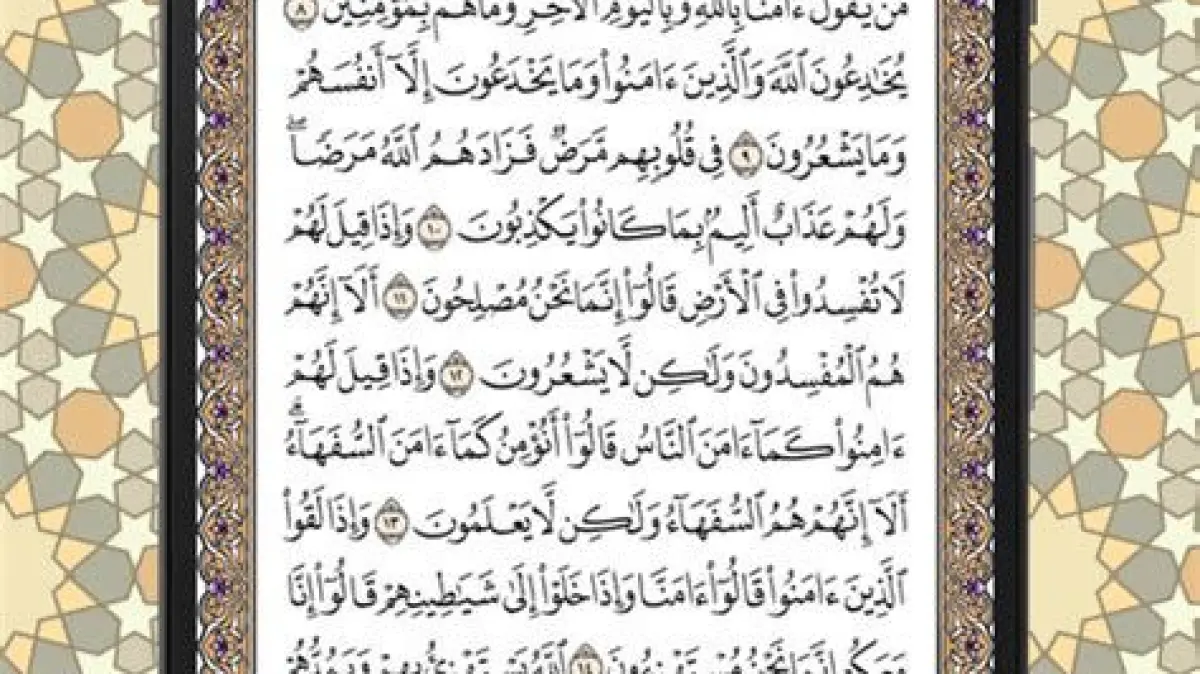 من يقول ءامنا بالله وباليوم الآخر وما هم بمؤمنين ٨
يُخَٰدِعُونَ ٱللَّهَ وَٱلَّذِينَ ءَامَنُوا۟ وَمَا يَخْدَعُونَ إِلَّآ أَنفُسَهُمْ
وَمَا يَشْعُرُونَ ٩ فِى قُلُوبِهِم مَّرَضٌ فَزَادَهُمُ ٱللَّهُ مَرَضًا ۖ
وَلَهُمْ عَذَابٌ أَلِيمٌۢ بِمَا كَانُوا۟ يَكْذِبُونَ ١٠ وَإِذَا قِيلَ لَهُمْ
لَا تُفْسِدُوا۟ فِى ٱلْأَرْضِ قَالُوٓا۟ إِنَّمَا نَحْنُ مُصْلِحُونَ ١١ أَلَآ إِنَّهُمْ
هُمُ ٱلْمُفْسِدُونَ وَلَٰكِن لَّا يَشْعُرُونَ ١٢ وَإِذَا قِيلَ لَهُمْ
ءَامِنُوا۟ كَمَآ ءَامَنَ ٱلنَّاسُ قَالُوٓا۟ أَنُؤْمِنُ كَمَآ ءَامَنَ ٱلسُّفَهَآءُ ۗ
أَلَآ إِنَّهُمْ هُمُ ٱلسُّفَهَآءُ وَلَٰكِن لَّا يَعْلَمُونَ ١٣ وَإِذَا لَقُوا۟
ٱلَّذِينَ ءَامَنُوا۟ قَالُوٓا۟ ءَامَنَّا وَإِذَا خَلَوْا۟ إِلَىٰ شَيَٰطِينِهِمْ قَالُوٓا۟ إِنَّا
معكم إنما نحن مستهزءون ١٤ الله يستهزئ بهم ويمدهم